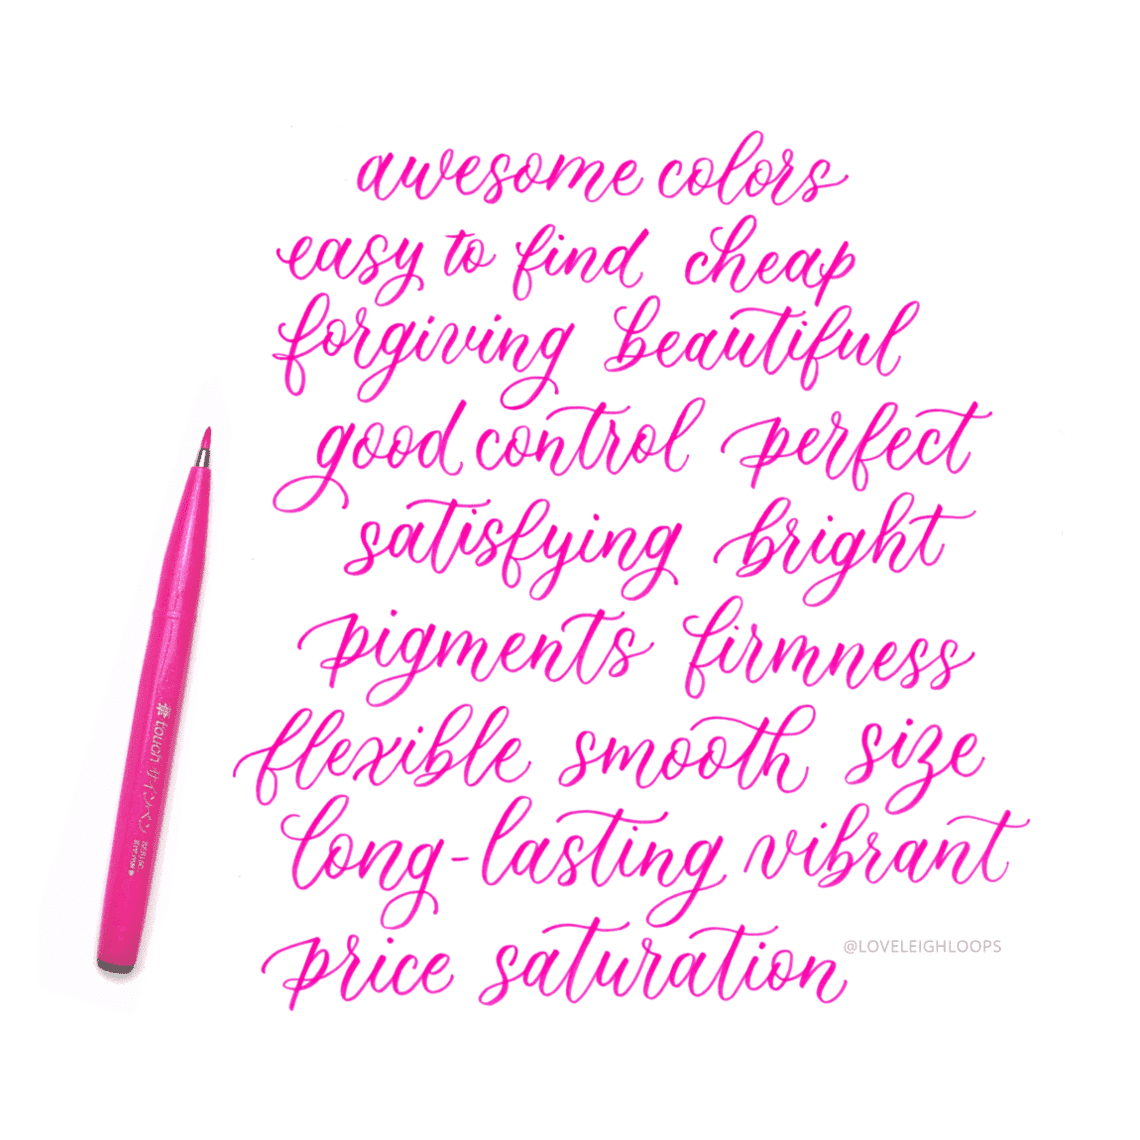 awesome colors
easy to find cheap
forgiving beautiful
good control perfect
satisfying bright
pigments firmness
flexible smooth size
long-lasting vibrant
price saturation
@LOVELEIGHLOOPS
touch サインペン